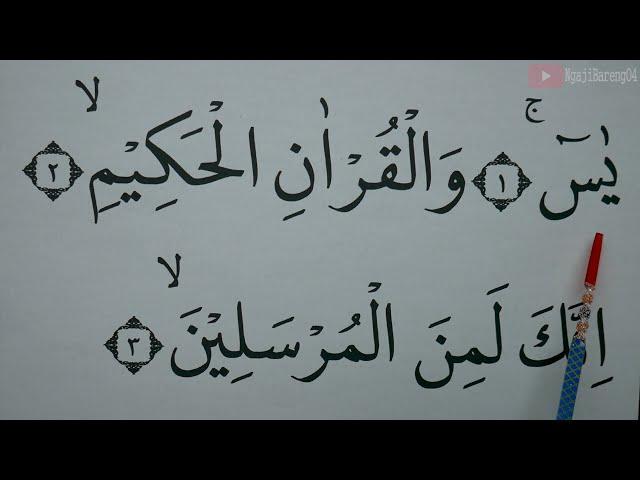 NgajiBareng04
يٰسۤ ۚ ۝١ وَالْقُرْاٰنِ الْحَكِيْمِ ۙ ۝٢
اِنَّكَ لَمِنَ الْمُرْسَلِيْنَ ۙ ۝٣